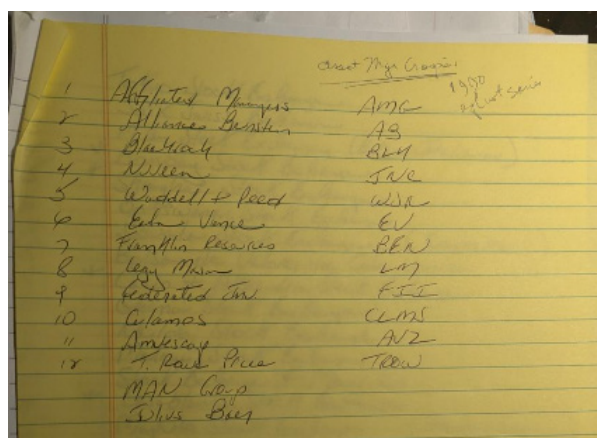 Asset Mgr
1 Affiliated Managers AMG
2 Alliance Bernstein AB
3 Blackrock BLK
4 Nuveen JNC
5 Waddell & Reed WDR
6 Eaton Vance EV
7 Franklin Resources BEN
8 Legg Mason LM
9 Federated Inv. FII
10 Calamos CLMS
11 Amvescap AVZ
12 T. Rowe Price TROW
MAN Group
Julius Baer